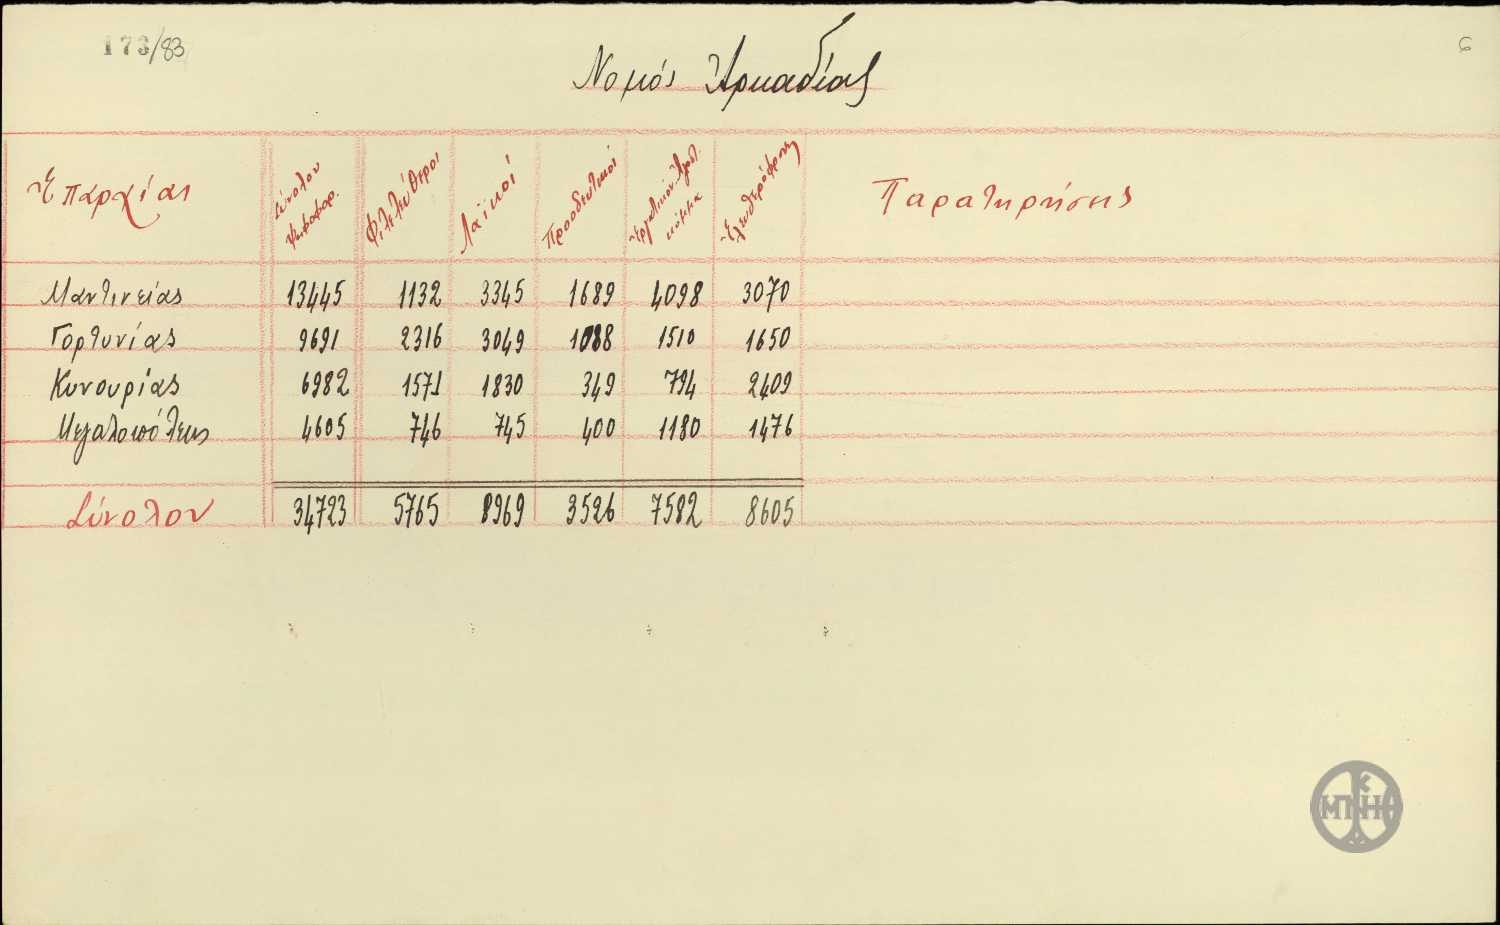 173/83
6
Νομός Ἀρκαδίας
Ἐπαρχίαι Σύνολον ψηφοφορ. Φιλελεύθεροι Λαϊκοί Προοδευτικοί Ἐργατικὸν Ἀγροτ. κόμμα Ἐλευθερόφρονες Παρατηρήσεις
Μαντινείας 13445 1132 3345 1689 4098 3070
Γορτυνίας 9691 2316 3049 1088 1510 1650
Κυνουρίας 6982 1571 1830 349 794 2409
Μεγαλοπόλεως 4605 746 745 400 1180 1476
Σύνολον 34723 5765 8969 3526 7582 8605
ΜΠΝΗ